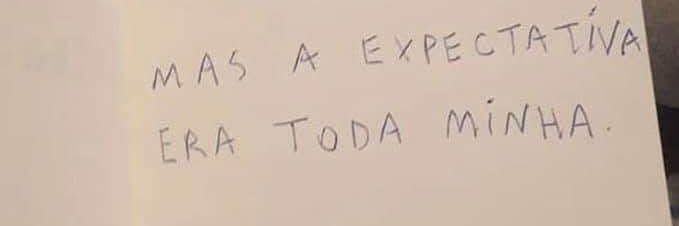 MAS A EXPECTATIVA
ERA TODA MINHA.